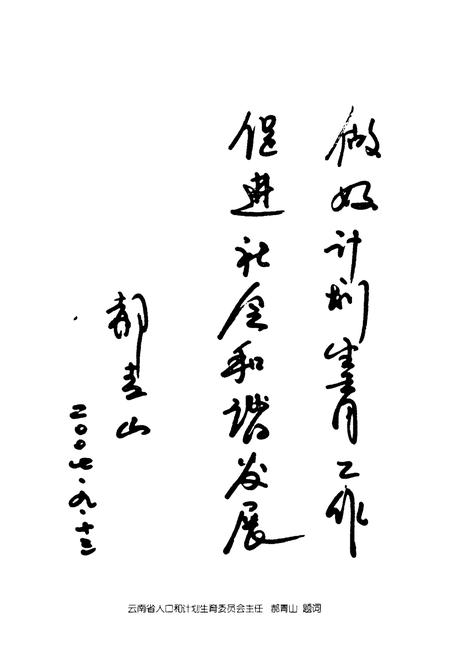 做好计划生育工作
促进社会和谐发展
郝青山
二〇〇七.九.十三
云南省人口和计划生育委员会主任 郝青山 题词